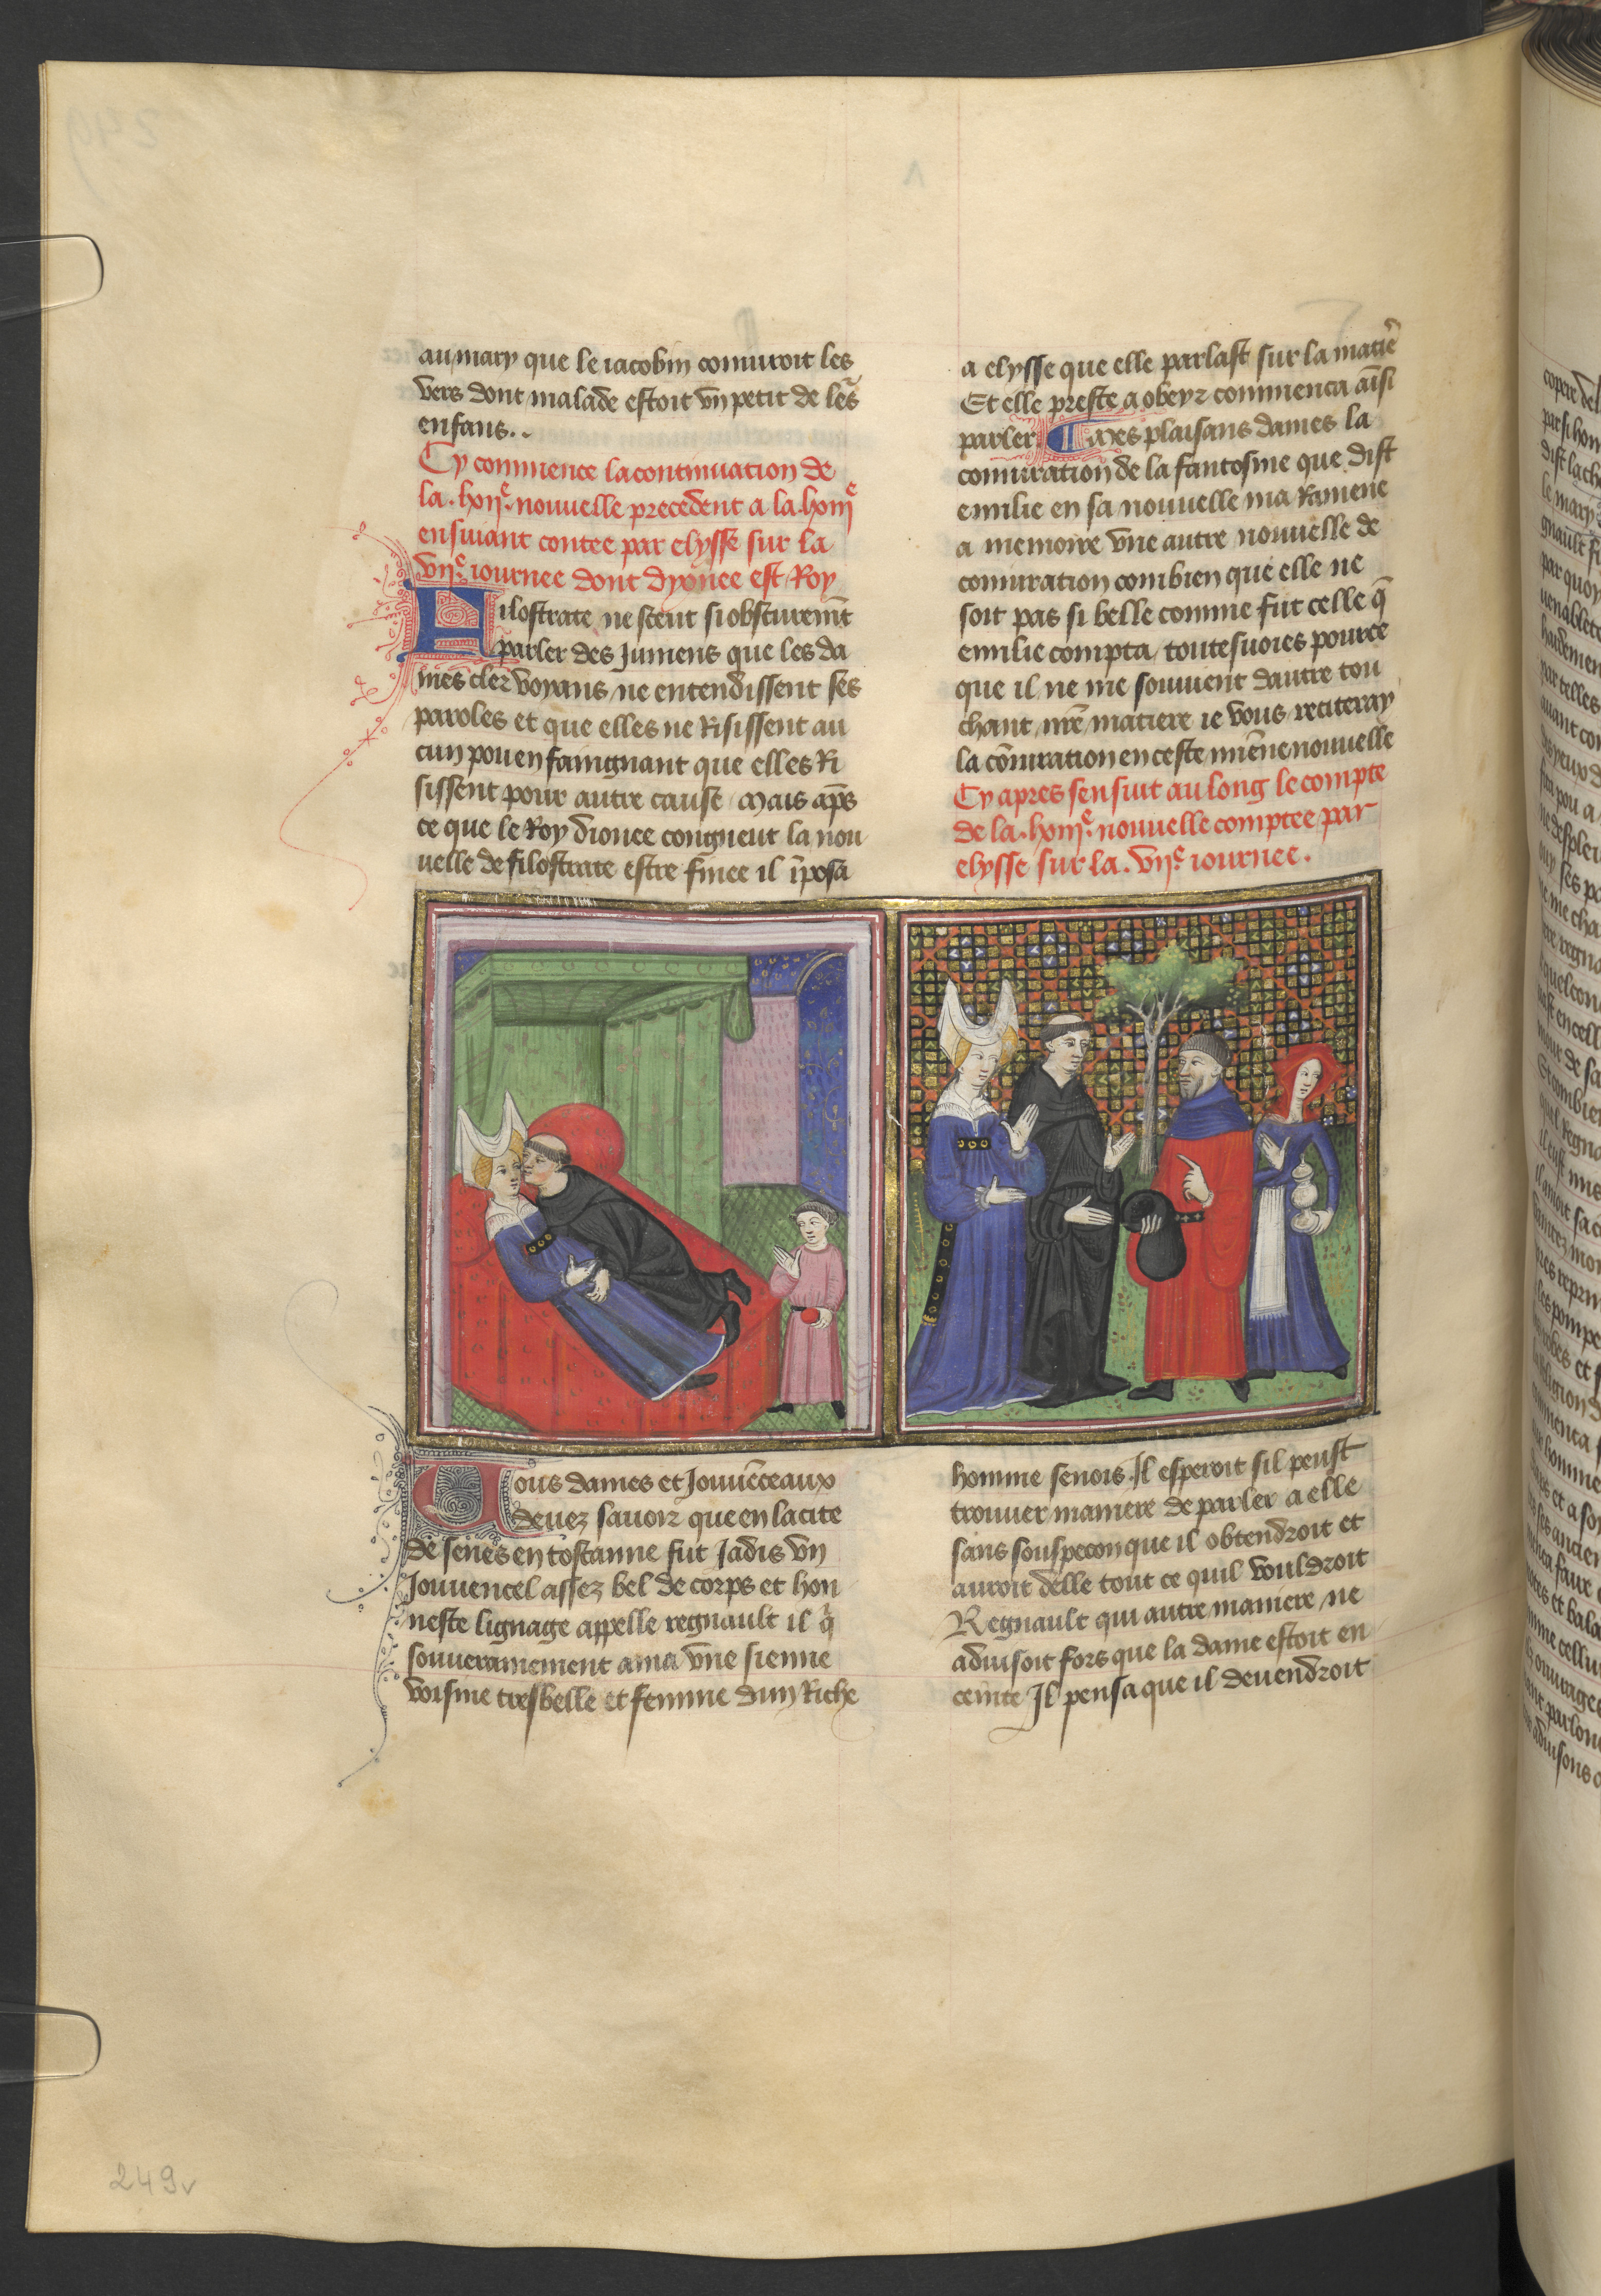 au mary que le iacobin coniuroit les
vers dont malade estoit vn petit de le͞s
enfans..
Cy commence la continuation de
la .lxiiᵉ. nouuelle precedent a la lxiiiᵉ
ensuiuant contee par elysse sur la
viiᵉ. iournee dont dyonee est Roy
Filostrate ne sceut si obscurem̄t
parler des Jumens que les da
mes cler voyans ne entendissent ses
paroles et que elles ne Risissent au
cun pou en faingnant que elles Ri
sissent pour autre cause Mais ap̄s
ce que le Roy dionee congneut la nou
uelle de filostrate estre finee il īposa
a elysse que elle parlast sur la matie᷑
Et elle preste a obeyr commenca aīsi
parler Mes plaisans dames la
coniuration de la fantosme que dist
emilie en sa nouuelle ma Ramene
a memoire vne autre nouuelle de
coniuration combien que elle ne
soit pas si belle comme fut celle q̄
emilie compta toutesuoies pource
que il ne me souuient dautre tou
chant n̄re matiere ie vous reciteray
la cōiuration en ceste miēne nouuelle
Cy apres sensuit au long le compte
de la .lxiiiᵉ. nouuelle comptee par
elysse sur la .viiᵉ. iournee.
Vous dames et Jouuēceaux
deuez sauoir que en la cite
de senes en toscanne fut Jadis vn
Jouuencel assez bel de corps et hon
neste lignage appelle regnault il q̄
souuerainement ama vne sienne
voisine tresbelle et femme dun Riche
homme senois. Il esperoit sil peust
trouuer maniere de parler a elle
sans souspecon que il obtendroit et
auroit delle tout ce quil vouldroit
Regnault qui autre maniere ne
aduisoit fors que la dame estoit en
ceinte Il pensa que il deuendroit
249v